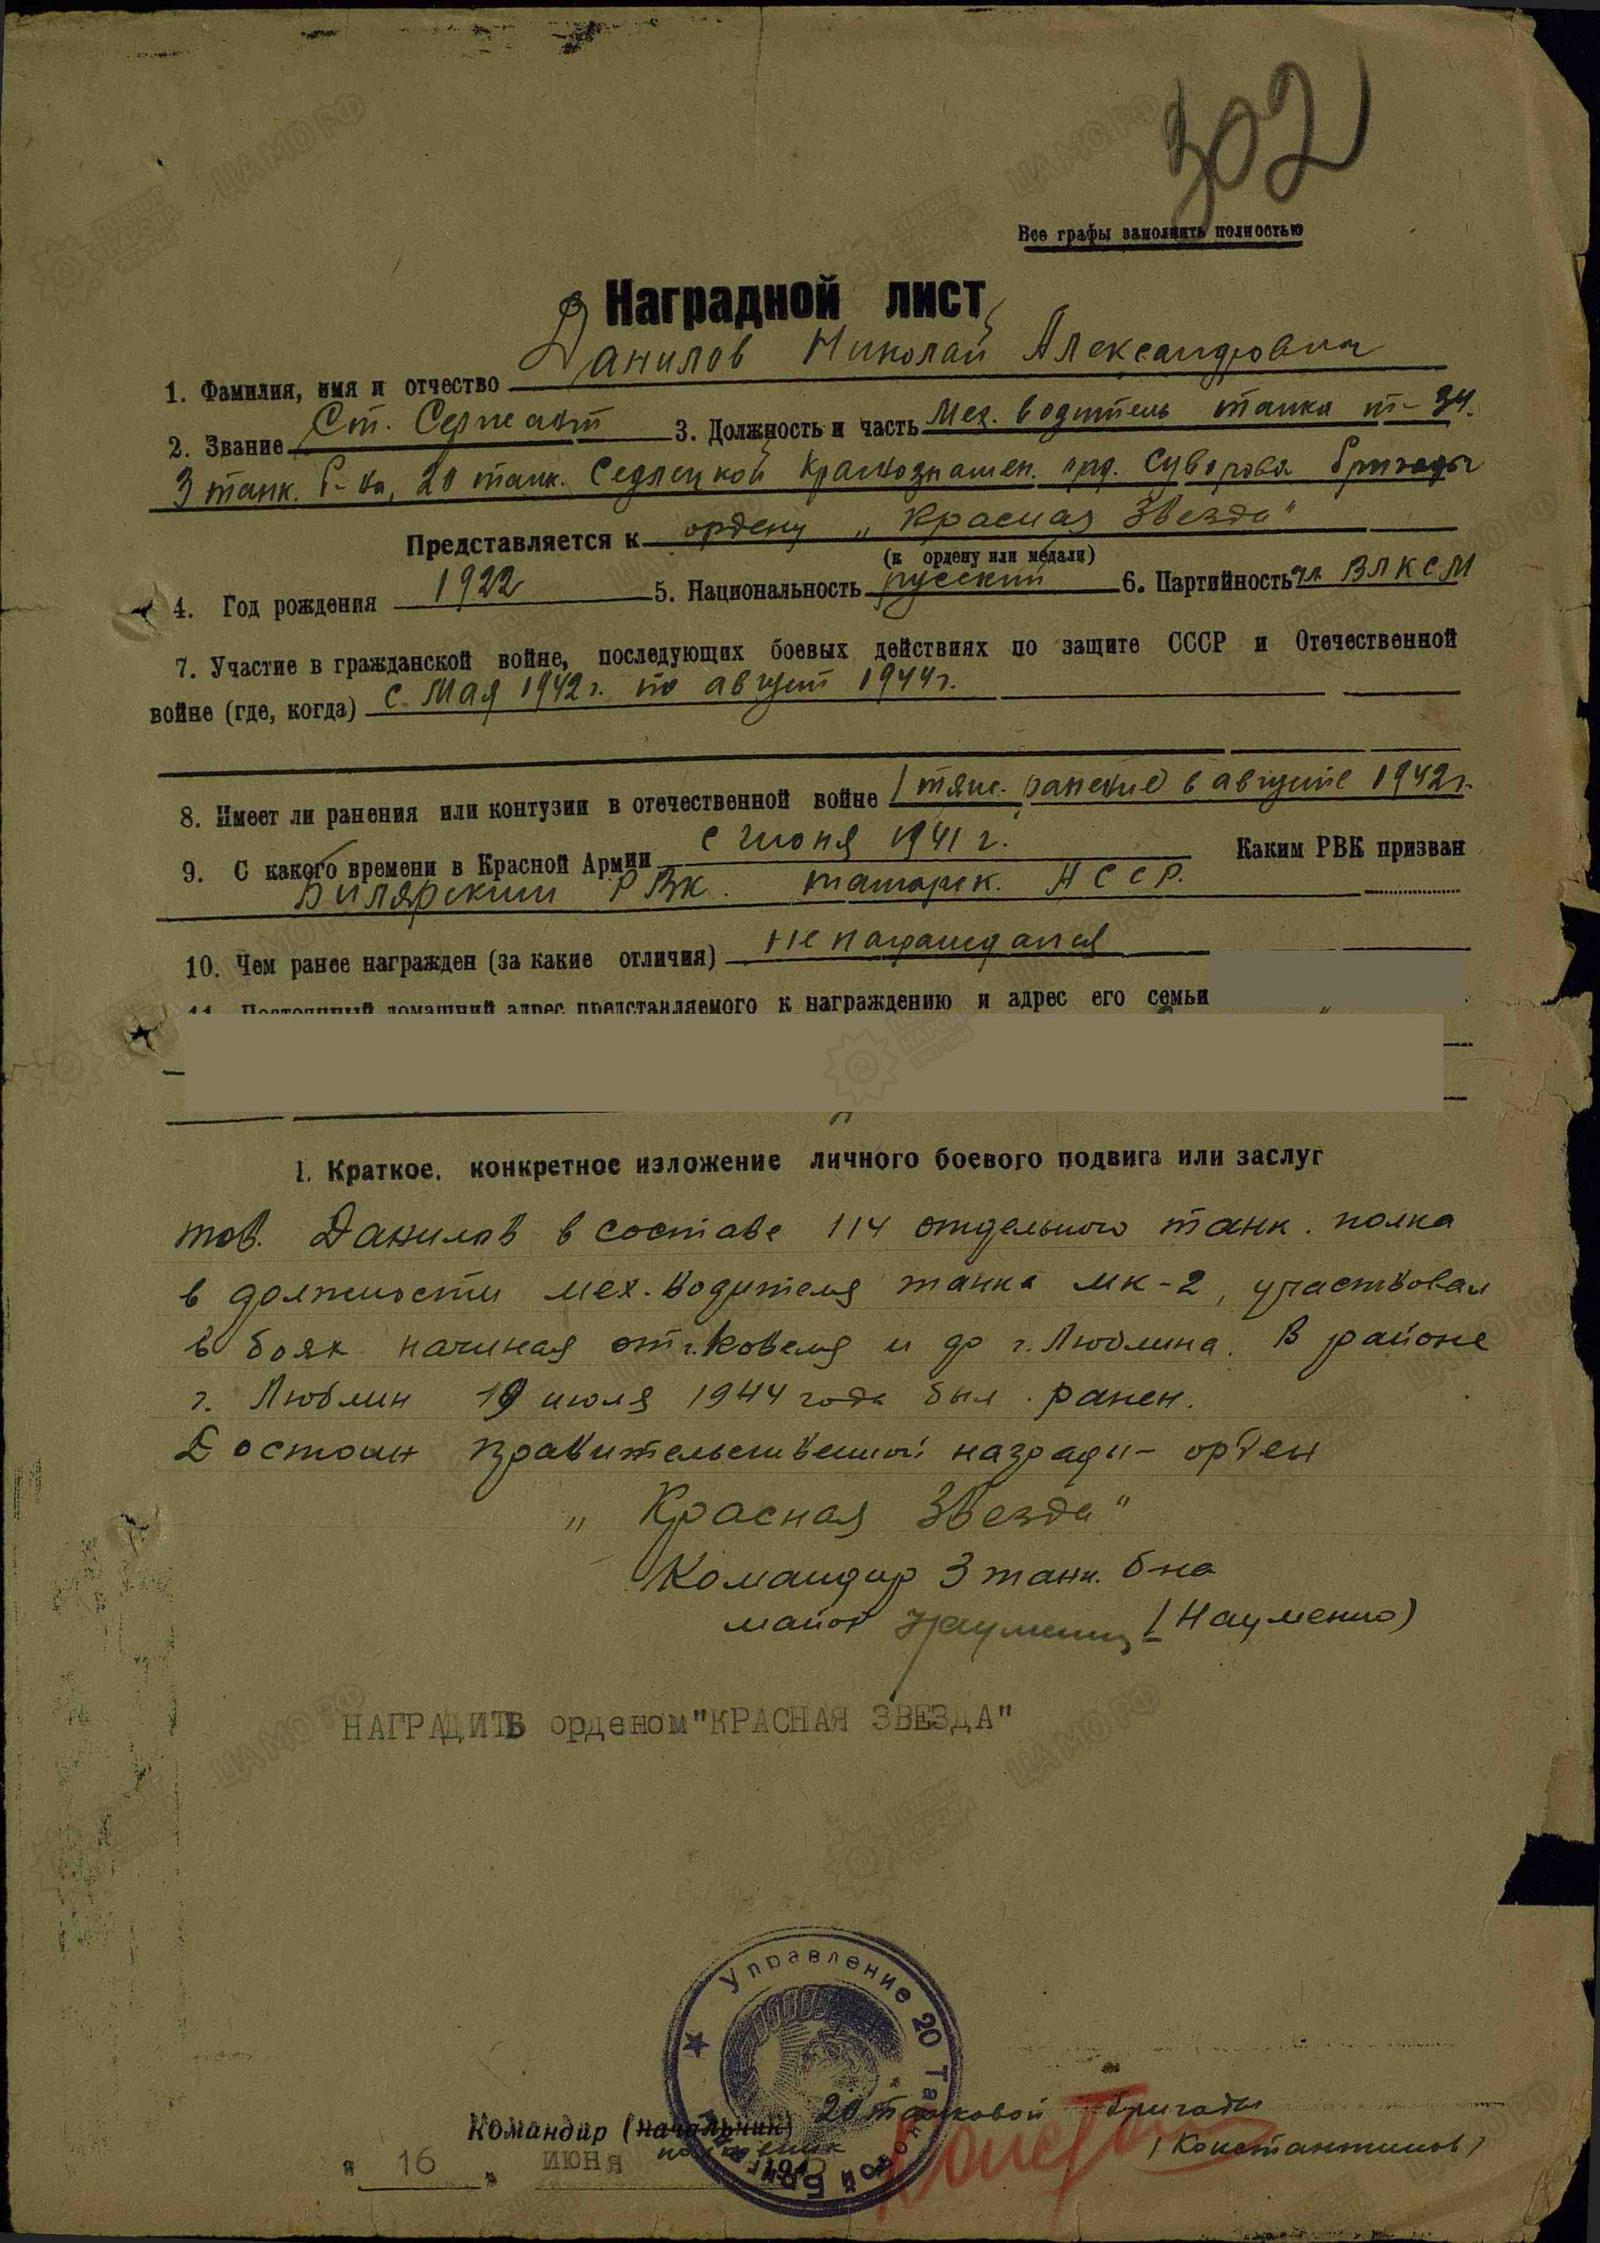 302
Все графы заполнять полностью
Наградной лист
1. Фамилия, имя и отчество Данилов Николай Александрович
2. Звание Ст. Сержант 3. Должность и часть Мех. водитель танка т-34.
3 танк. б-на, 20 танк. Седлецкой Краснознамен. орд. Суворова бригады
Представляется к ордену „Красная Звезда"
(к ордену или медали)
4. Год рождения 1922 5. Национальность русский 6. Партийность чл ВЛКСМ
7. Участие в гражданской войне, последующих боевых действиях по защите СССР и Отечественной
войне (где, когда) с Мая 1942 г. по август 1944 г.
8. Имеет ли ранения или контузии в отечественной войне 1 тяж. ранение в августе 1942 г.
9. С какого времени в Красной Армии с Июня 1941 г. Каким РВК призван
Билярским РВК. татарск. АССР.
10. Чем ранее награжден (за какие отличия) не награждался
11. Постоянный домашний адрес представляемого к награждению и адрес его семьи
1. Краткое, конкретное изложение личного боевого подвига или заслуг
тов. Данилов в составе 114 отдельного танк. полка
в должности мех. водителя танка мк-2, участвовал
в боях начиная от г. Ковеля и до г. Люблина. В районе
г. Люблин 19 июля 1944 года был ранен.
Достоин правительственной награды - орден
„Красная Звезда"
Командир 3 танк. б-на
майор Науменко (Науменко)
НАГРАДИТЬ орденом "КРАСНАЯ ЗВЕЗДА"
Управление 20 Танковой Бриг
Командир (начальник) 20 танковой бригады
полковник (Константинов)
„ 16 „ июня 194